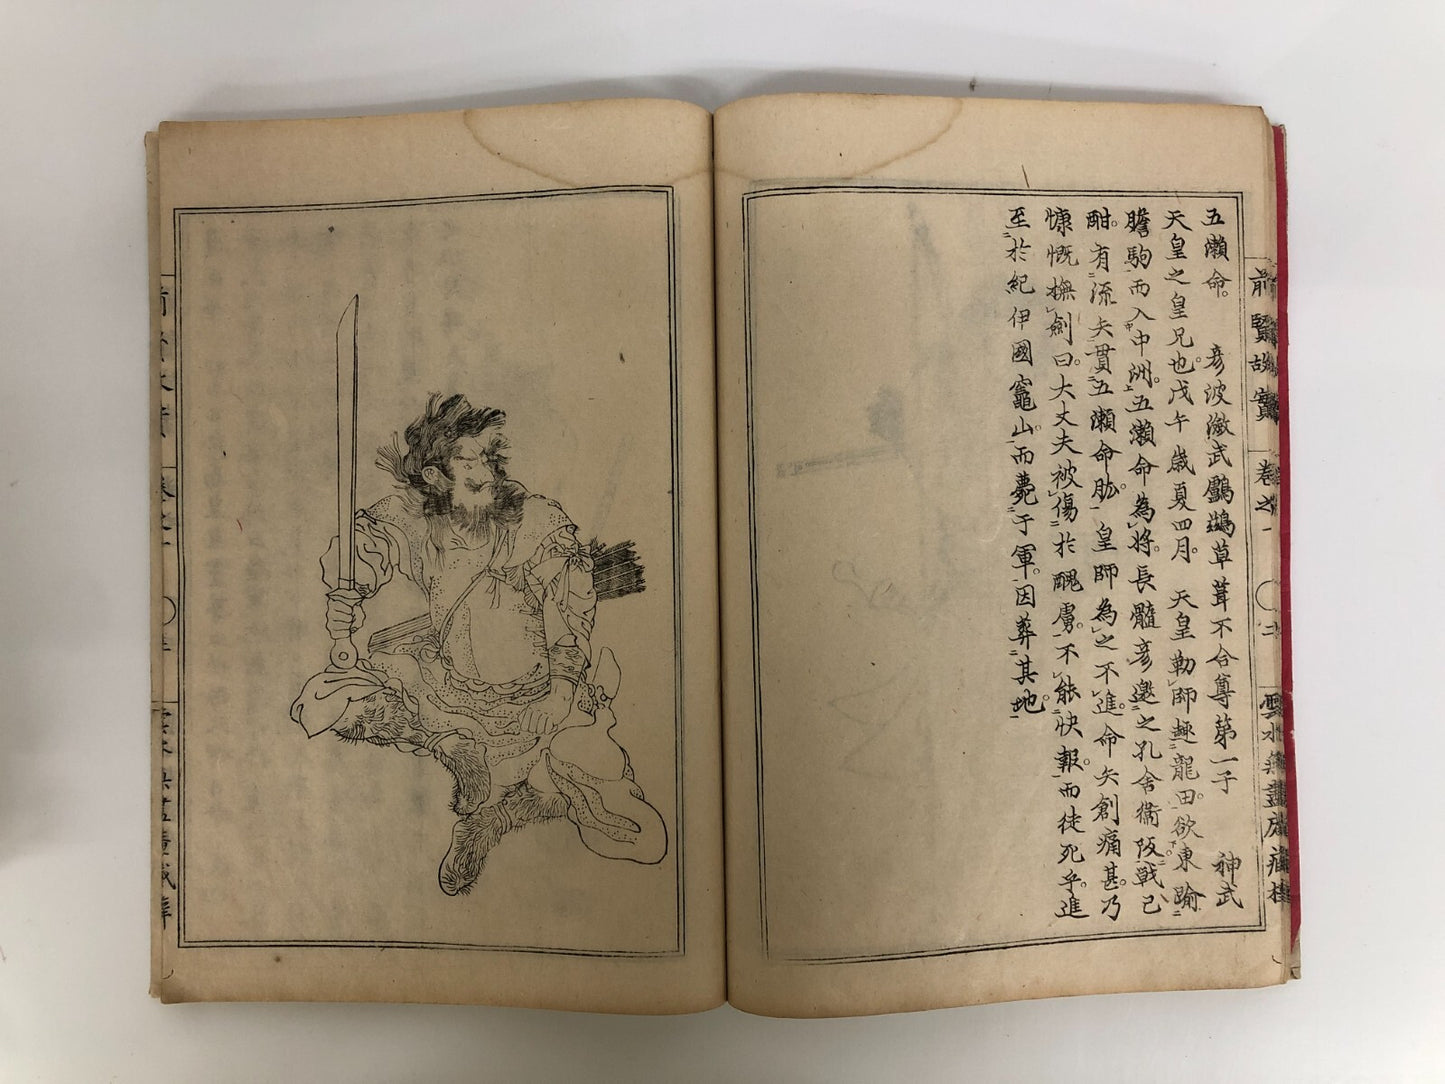 五瀨命。 彦波瀲武鸕鷀草葺不合尊第一子 神武
天皇之皇兄也。戊午歳夏四月。 天皇勒師趣龍田。欲東踰
膽駒而入中洲。五瀨命為將。長髓彦邀之孔舎衞阪。戰已
酣。有流矢貫五瀨命肱。 皇師為之不進。命矢創痛甚。乃
慷慨撫劍曰。大丈夫被傷於醜虜。不能快報。而徒死乎。進
至於紀伊國竈山。而薨于軍。因葬其地。
前賢故實 卷之一